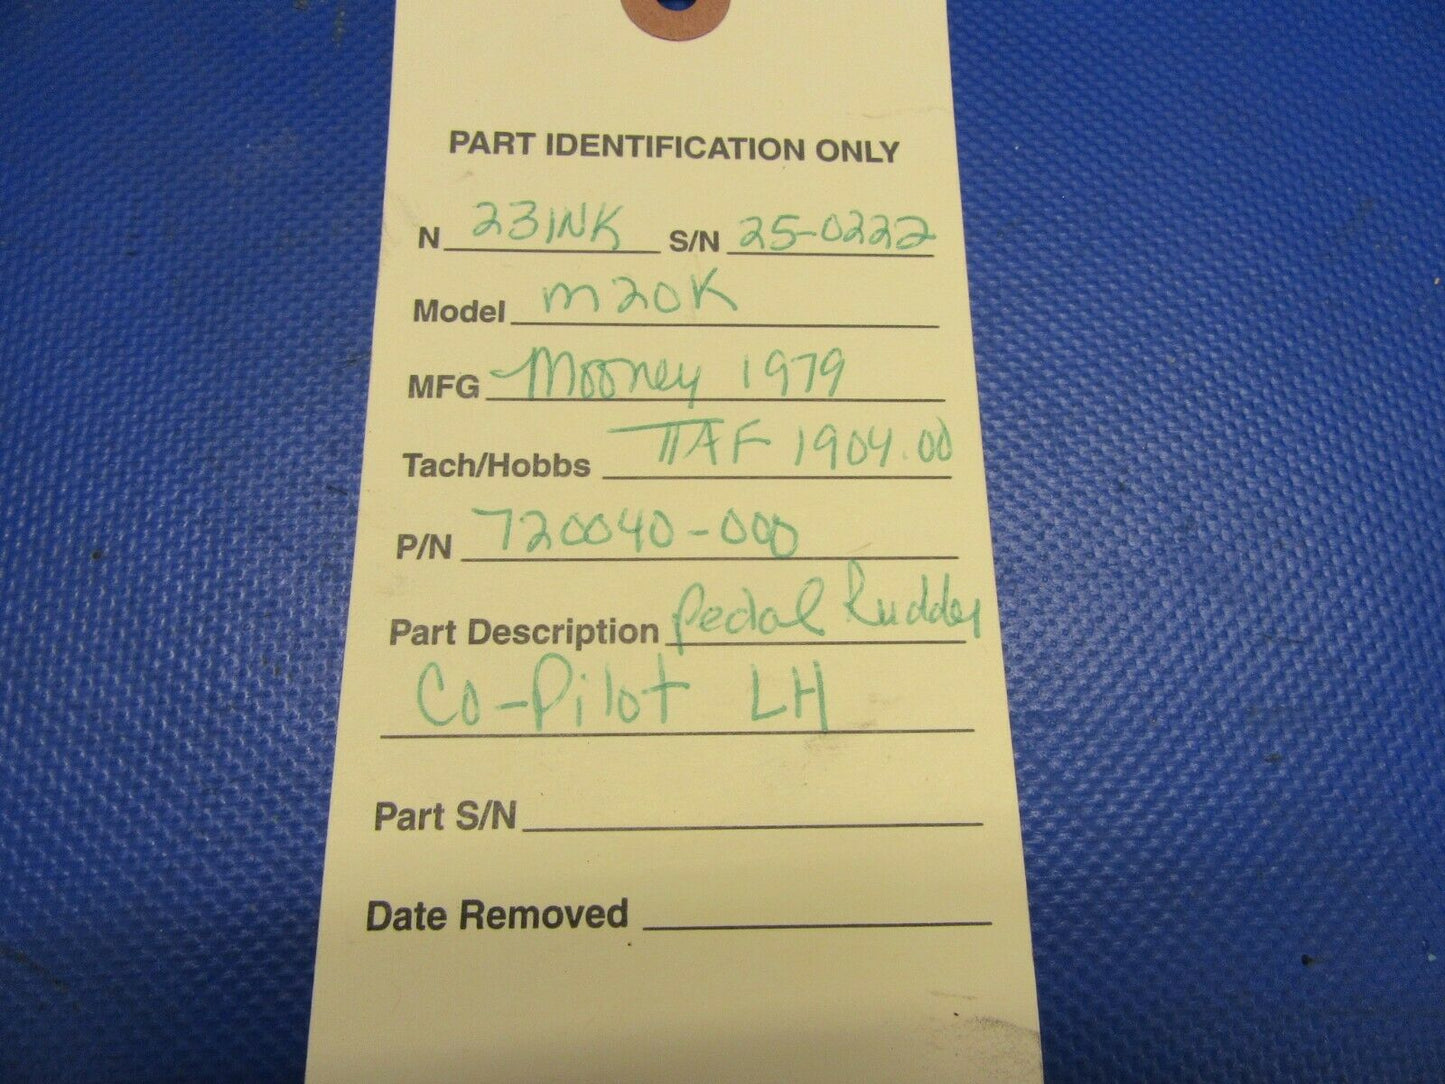 PART IDENTIFICATION ONLY
N 231NK S/N 25-0222
Model M20K
MFG Mooney 1979
Tach/Hobbs TTAF 1904.00
P/N 720040-000
Part Description Pedal Rudder
Co-Pilot LH
Part S/N
Date Removed